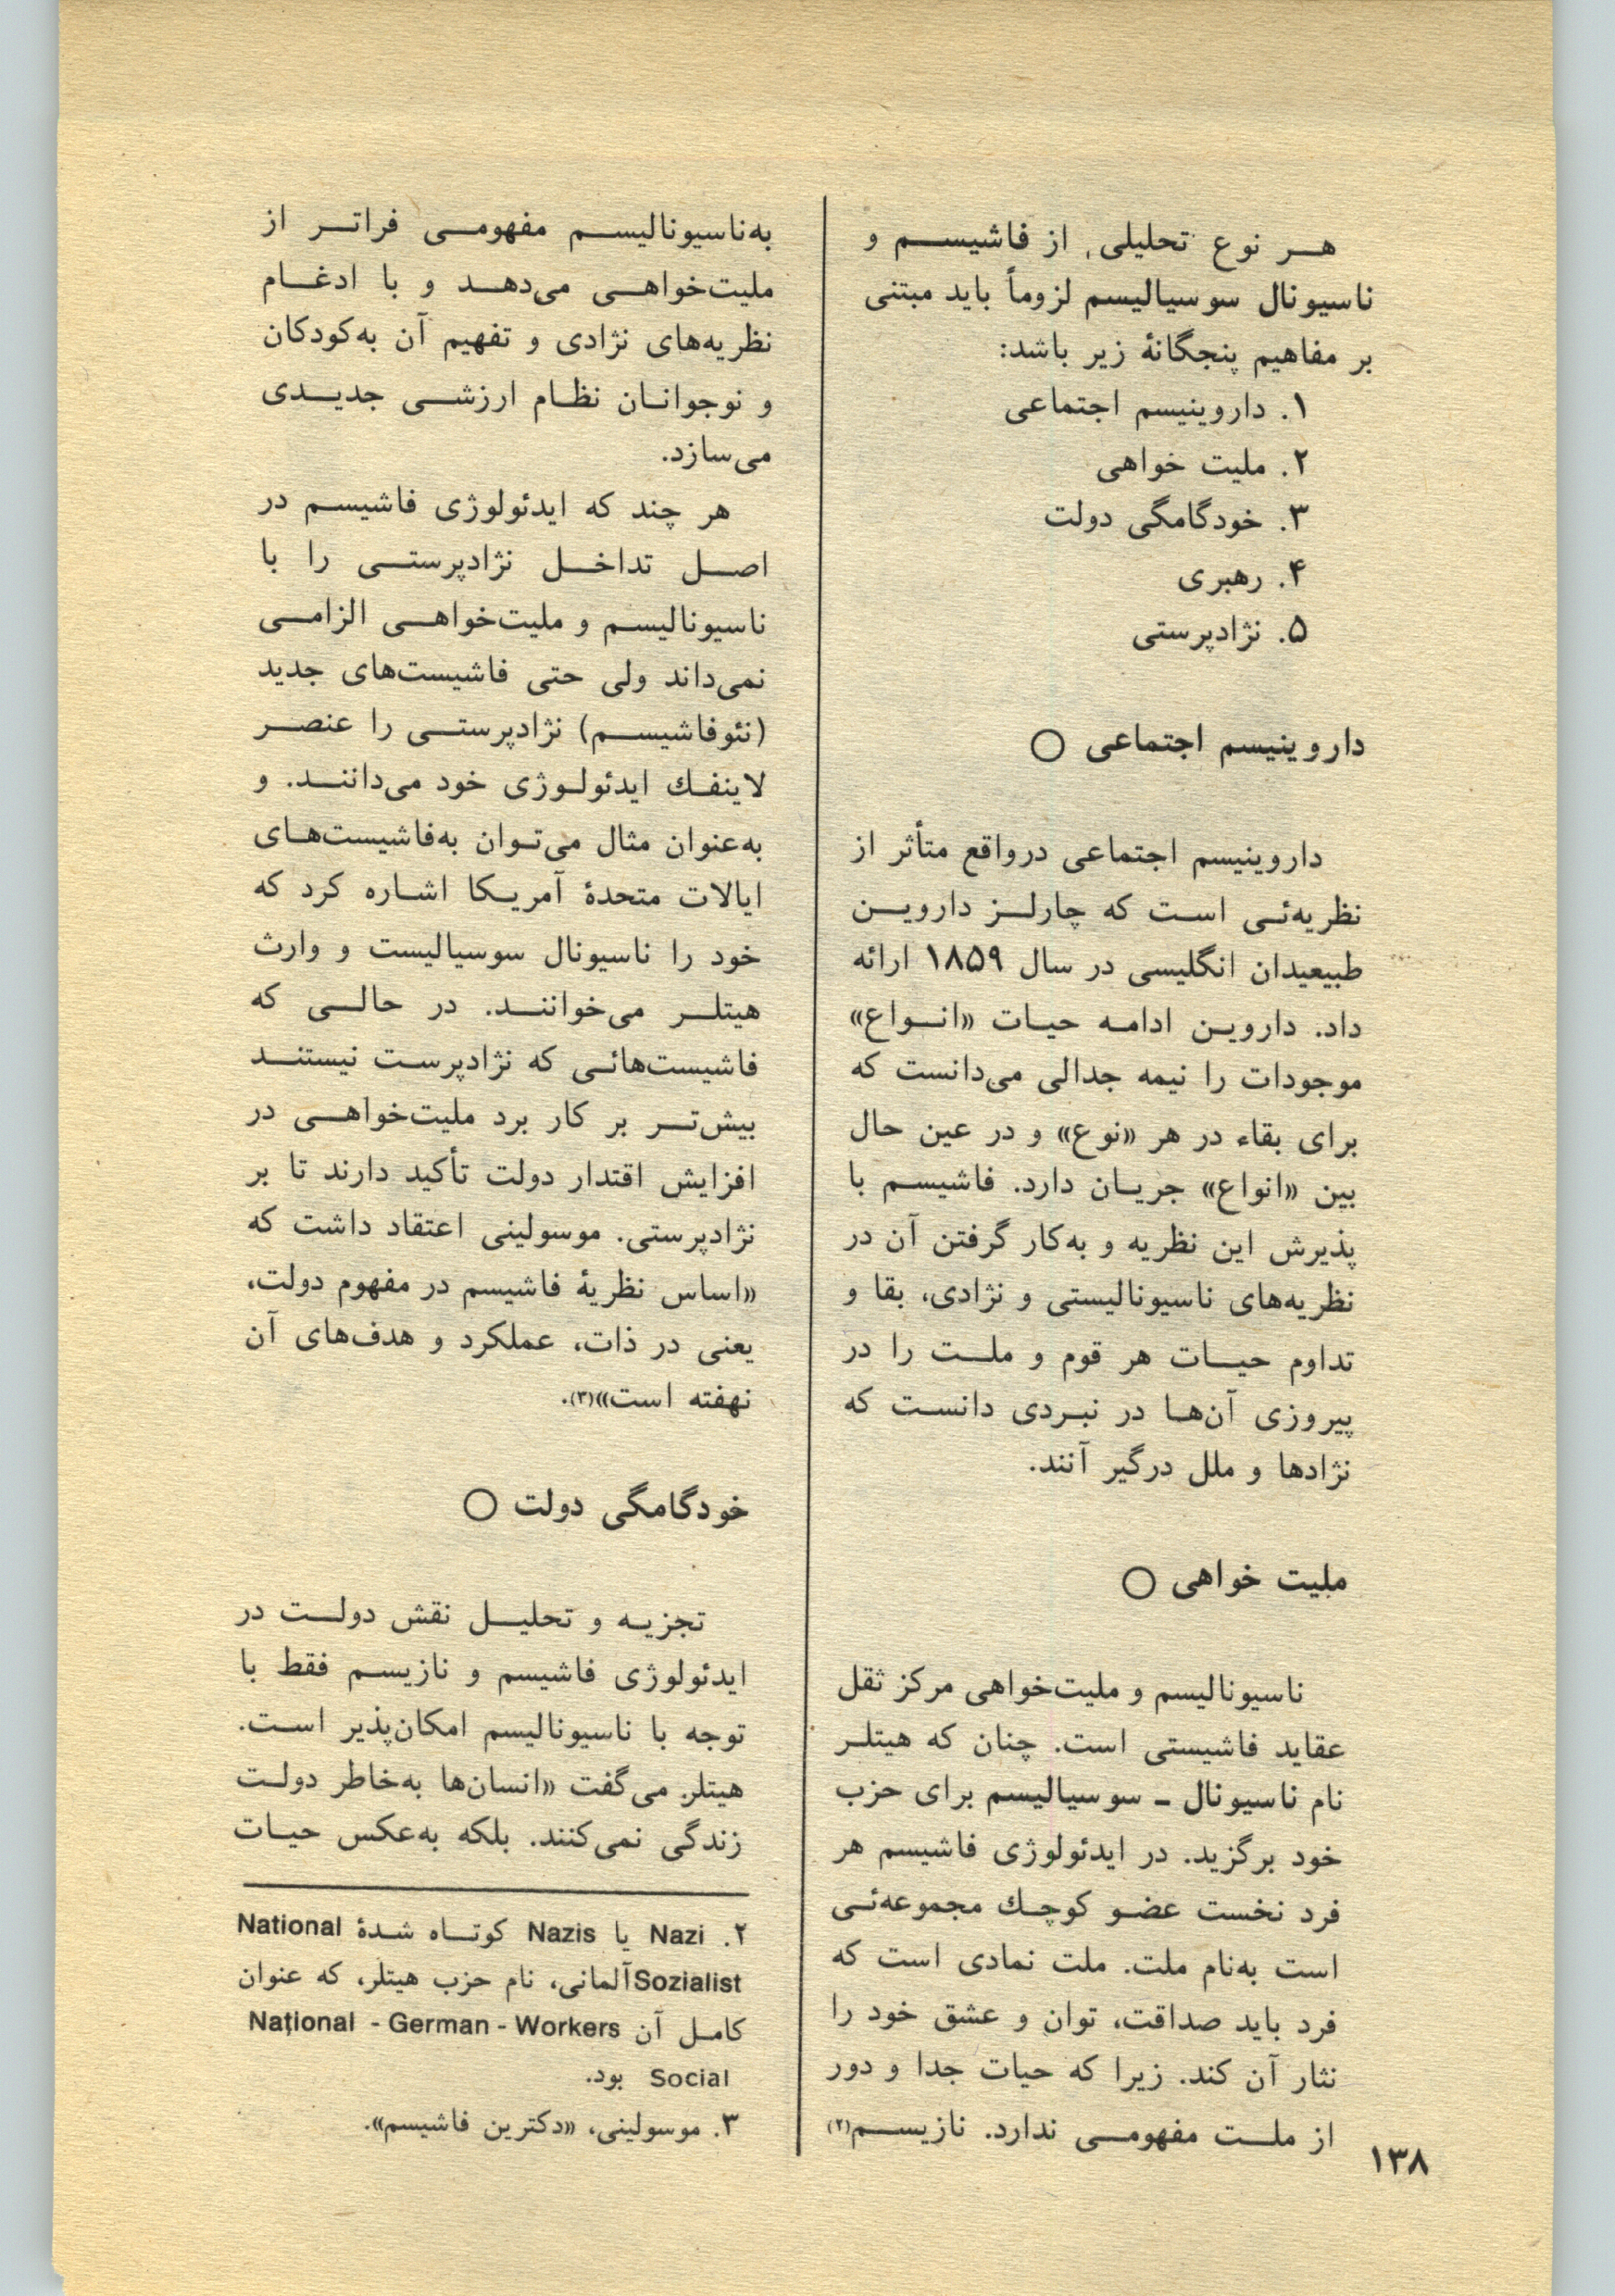 هر نوع تحلیلی از فاشیسم و
ناسیونال سوسیالیسم لزوماً باید مبتنی
بر مفاهیم پنجگانهٔ زیر باشد:
۱. داروینیسم اجتماعی
۲. ملیت خواهی
۳. خودگامگی دولت
۴. رهبری
۵. نژادپرستی
داروینیسم اجتماعی ○
داروینیسم اجتماعی درواقع متأثر از
نظریه‌ئی است که چارلز داروین
طبیعیدان انگلیسی در سال ۱۸۵۹ ارائه
داد. داروین ادامه حیات «انواع»
موجودات را نیمه جدالی می‌دانست که
برای بقاء در هر «نوع» و در عین حال
بین «انواع» جریان دارد. فاشیسم با
پذیرش این نظریه و به‌کار گرفتن آن در
نظریه‌های ناسیونالیستی و نژادی، بقا و
تداوم حیات هر قوم و ملت را در
پیروزی آن‌ها در نبردی دانست که
نژادها و ملل درگیر آنند.
ملیت خواهی ○
ناسیونالیسم و ملیت‌خواهی مرکز ثقل
عقاید فاشیستی است. چنان که هیتلر
نام ناسیونال ـ سوسیالیسم برای حزب
خود برگزید. در ایدئولوژی فاشیسم هر
فرد نخست عضو کوچك مجموعه‌ئی
است به‌نام ملت. ملت نمادی است که
فرد باید صداقت، توان و عشق خود را
نثار آن کند. زیرا که حیات جدا و دور
از ملت مفهومی ندارد. نازیسم(۲)
به‌ناسیونالیسم مفهومی فراتر از
ملیت‌خواهی می‌دهد و با ادغام
نظریه‌های نژادی و تفهیم آن به‌کودکان
و نوجوانان نظام ارزشی جدیدی
می‌سازد.
هر چند که ایدئولوژی فاشیسم در
اصل تداخل نژادپرستی را با
ناسیونالیسم و ملیت‌خواهی الزامی
نمی‌داند ولی حتی فاشیست‌های جدید
(نئوفاشیسم) نژادپرستی را عنصر
لاینفك ایدئولوژی خود می‌دانند. و
به‌عنوان مثال می‌توان به‌فاشیست‌های
ایالات متحدهٔ آمریکا اشاره کرد که
خود را ناسیونال سوسیالیست و وارث
هیتلر می‌خوانند. در حالی که
فاشیست‌هائی که نژادپرست نیستند
بیش‌تر بر کار برد ملیت‌خواهی در
افزایش اقتدار دولت تأکید دارند تا بر
نژادپرستی. موسولینی اعتقاد داشت که
«اساس نظریهٔ فاشیسم در مفهوم دولت،
یعنی در ذات، عملکرد و هدف‌های آن
نهفته است»(۳).
خودگامگی دولت ○
تجزیه و تحلیل نقش دولت در
ایدئولوژی فاشیسم و نازیسم فقط با
توجه با ناسیونالیسم امکان‌پذیر است.
هیتلر می‌گفت «انسان‌ها به‌خاطر دولت
زندگی نمی‌کنند. بلکه به‌عکس حیات
۲. Nazi یا Nazis کوتاه شدهٔ National
Sozialist آلمانی، نام حزب هیتلر، که عنوان
کامل آن National - German - Workers
Social بود.
۳. موسولینی، «دکترین فاشیسم».
۱۳۸